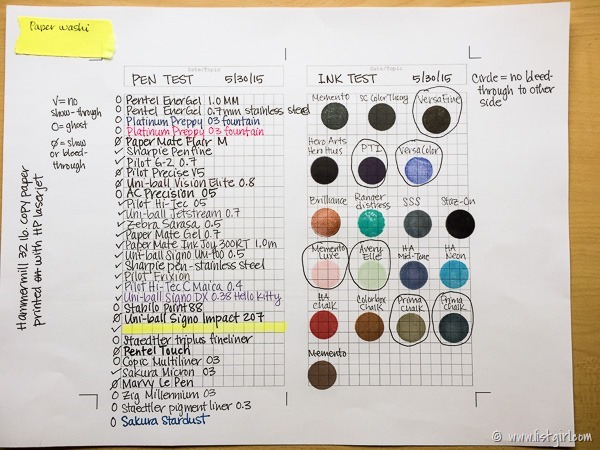 Paper washi
Date/Topic
PEN TEST 5/30/15
Date/Topic
INK TEST 5/30/15
Circle = no bleed-
through to other
side
√= no
show-through
O= ghost
Ø= show
or bleed-
through
Hammermill 32 lb. copy paper
printed on with HP laserjet
O Pentel EnerGel 1.0 MM
O Pentel EnerGel 0.7mm stainless steel
O Platinum Preppy 03 fountain
O Platinum Preppy 03 fountain
Ø Paper Mate Flair M
✓ Sharpie Penfine
✓ Pilot G-2 0.7
Ø Pilot Precise V5
O Uni-ball Vision Elite 0.8
O AC Precision 05
✓ Pilot Hi-Tec 05
✓ Uni-ball Jetstream 0.7
✓ Zebra Sarasa 0.5
✓ Paper Mate Gel 0.7
✓ Paper Mate Ink Joy 300RT 1.0m
✓ Uni-ball Signo UM-100 0.5
✓ Sharpie pen-stainless steel
✓ Pilot Frixion
✓ Pilot Hi-Tec C Maica 0.4
✓ Uni-ball Signo DX 0.38 Hello Kitty
O Stabilo Point 88
Ø Uni-ball Signo Impact 207
✓
O Staedtler triplus fineliner
Ø Pentel Touch
O Copic Multiliner 03
✓ Sakura Micron 03
Ø Marvy Le Pen
O Zig Millennium 03
O Staedtler pigment liner 0.3
O Sakura Stardust
Memento
SC Color Theory
VersaFine
Hero Arts
Hero Hues
PTI
VersaColor
Brilliance
Ranger
distress
SSS
Staz-On
Memento
Luxe
Avery
Elle
HA
Mid-Tone
HA
Neon
HA
Chalk
Colorbox
Chalk
Prima
Chalk
Prima
Chalk
Memento
© www.listgirl.com